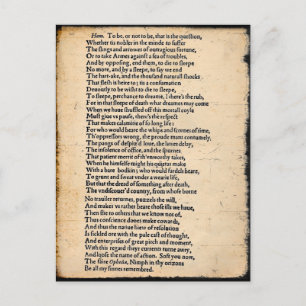 Ham. To be, or not to be, that is the question,
Whether tis nobler in the minde to suffer
The slings and arrowes of outragious fortune,
Or to take Armes against a sea of troubles,
And by opposing, end them, to die to sleepe
No more, and by a sleepe, to say we end
The hart-ake, and the thousand naturall shocks
That flesh is heire to; tis a consumation
Deuoutly to be wisht to die to sleepe,
To sleepe, perchance to dreame, I there's the rub,
For in that sleepe of death what dreames may come
When we haue shuffled off this mortall coyle
Must giue vs pause, there's the respect
That makes calamitie of so long life:
For who would beare the whips and scornes of time,
Th'oppressors wrong, the proude mans contumely,
The pangs of despiz'd loue, the lawes delay,
The insolence of office, and the spurnes
That patient merrit of th'vnworthy takes,
When he himselfe might his quietas make
With a bare bodkin; who would fardels beare,
To grunt and sweat vnder a wearie life,
But that the dread of something after death,
The vndiscouer'd country, from whose borne
No trauiler returnes, puzzels the will,
And makes vs rather beare those ills we haue,
Then flie to others that we know not of.
Thus conscience dooes make cowards,
And thus the natiue hiew of resolution
Is sickled ore with the pale cast of thought,
And enterprises of great pitch and moment,
With this regard theyr currents turne awry,
And loose the name of action. Soft you now,
The faire Ophelia, Nimph in thy orizons
Be all my sinnes remembred.